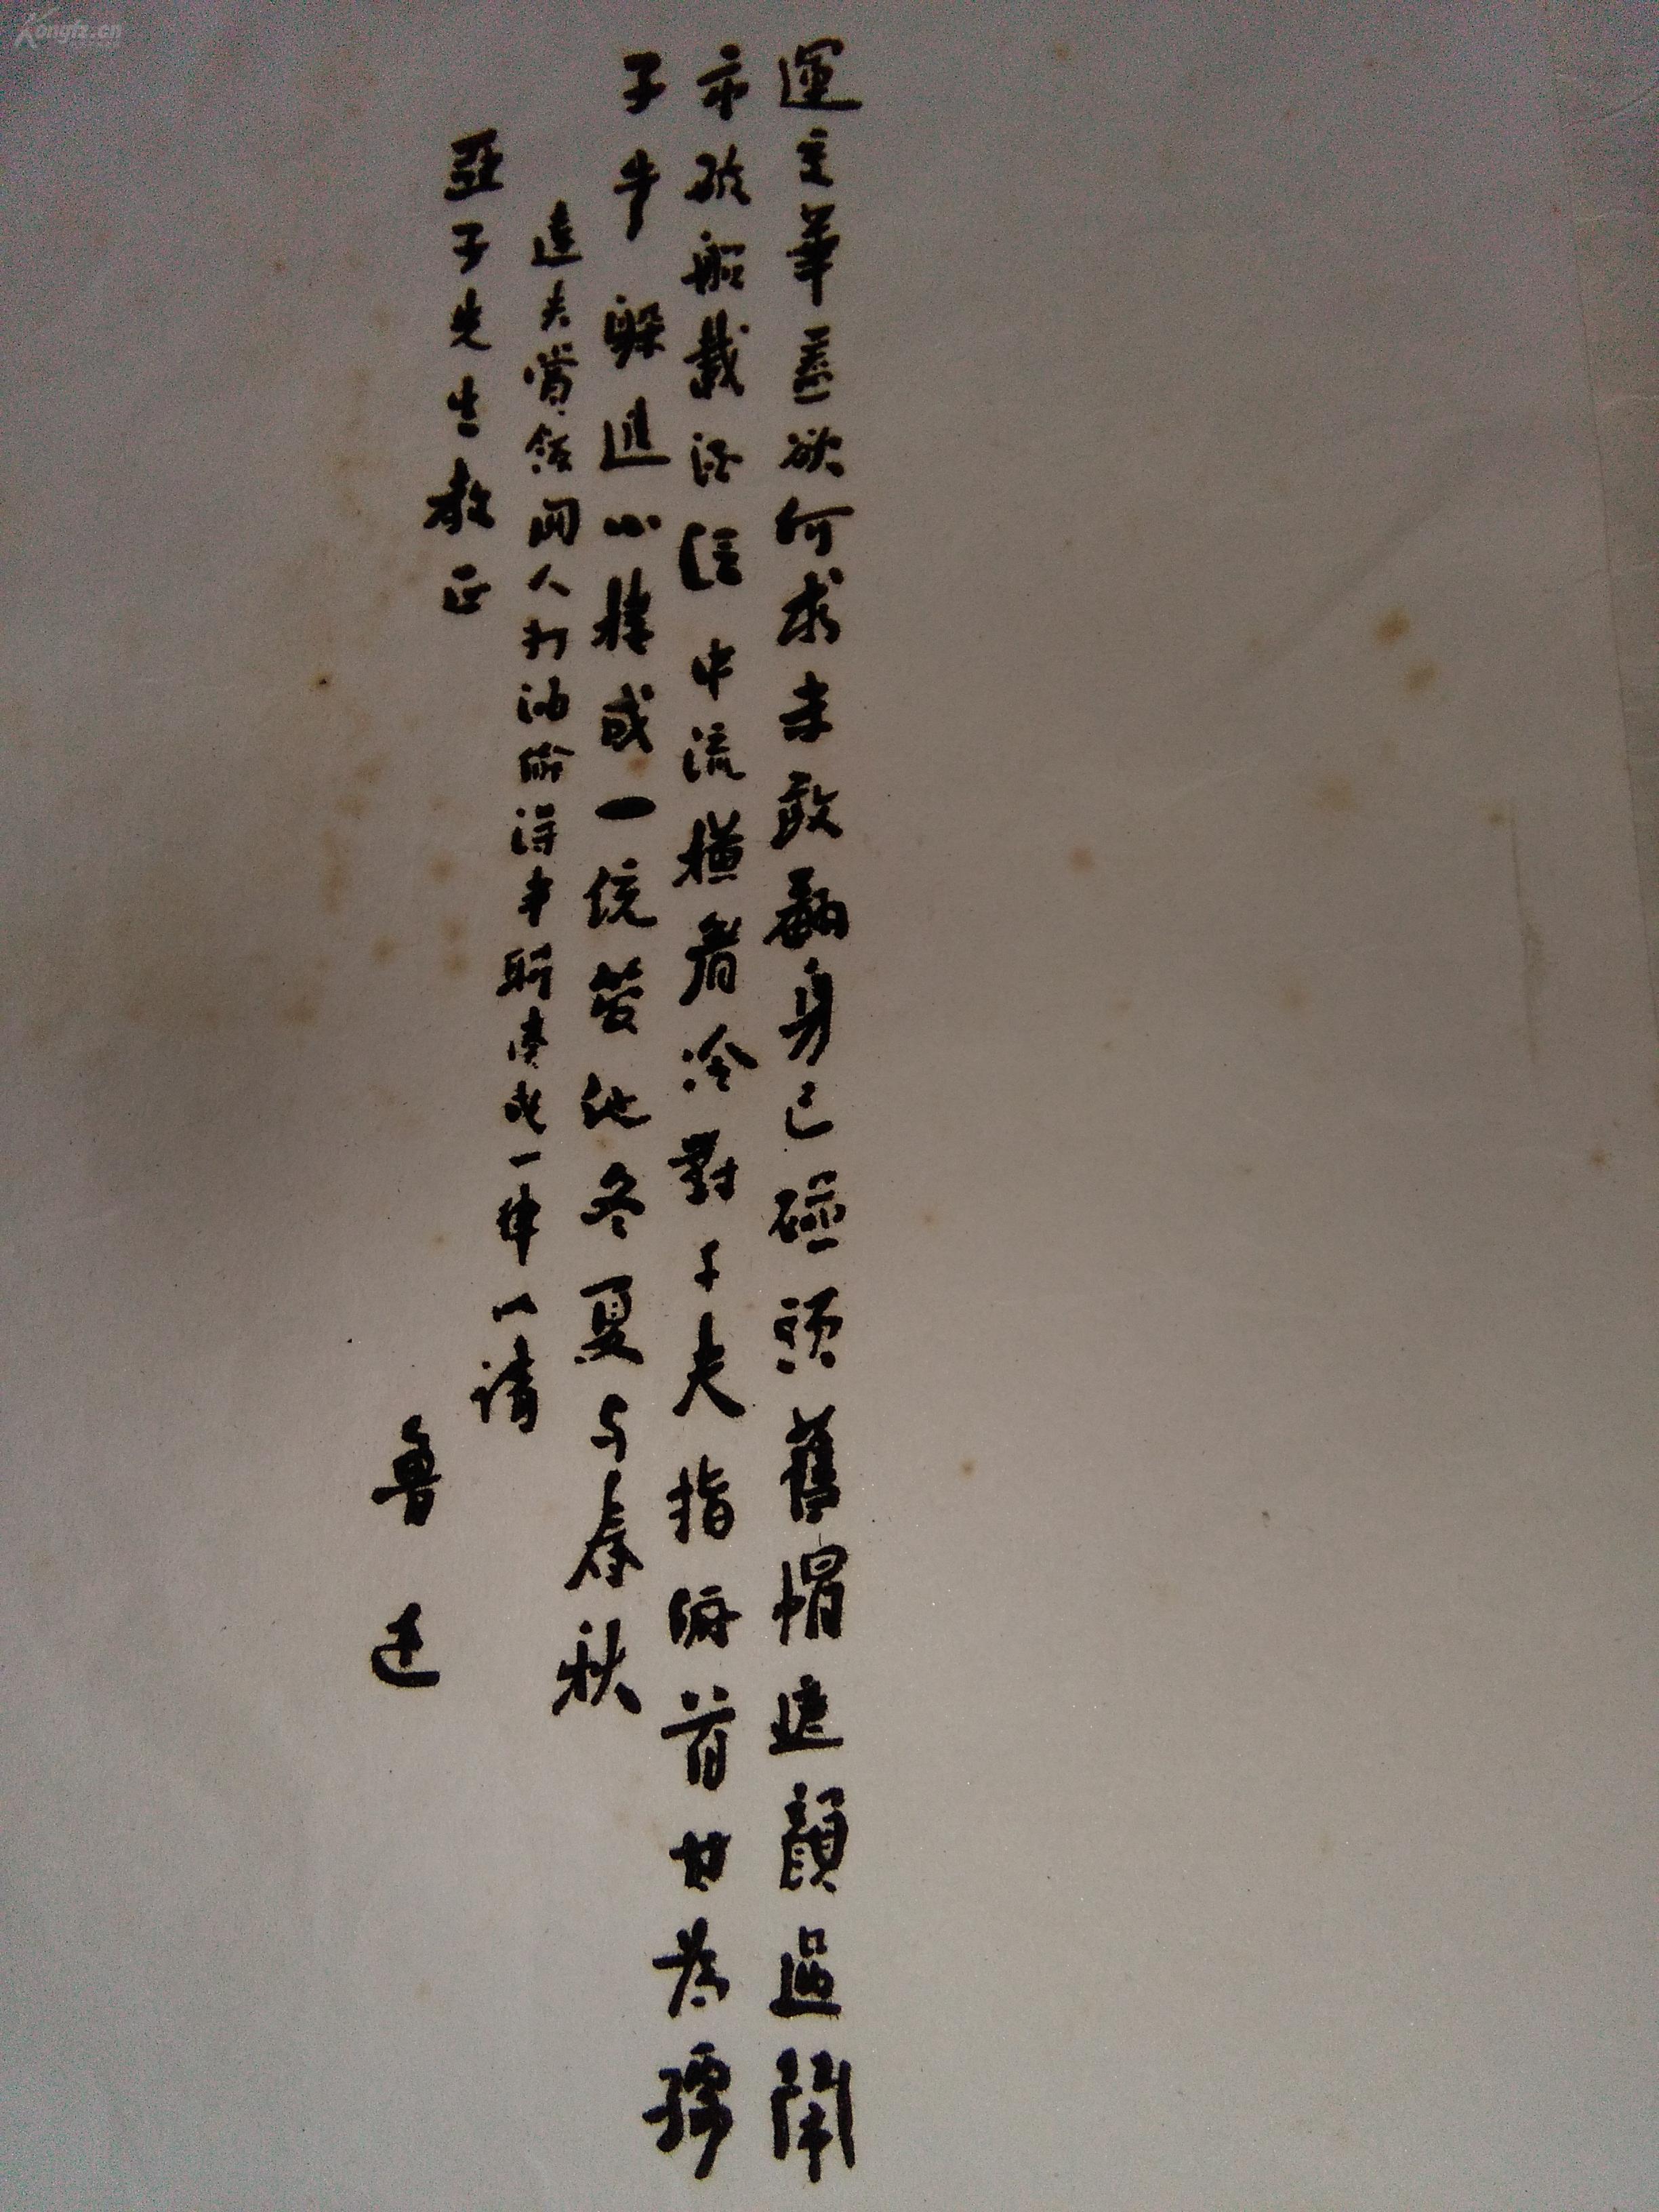 Kongfz.cn
運交華蓋欲何求未敢翻身已碰頭舊帽遮顏過鬧
市破船載酒泛中流橫眉冷對千夫指俯首甘為孺
子牛躲進小樓成一統管他冬夏与春秋
達夫賞飯閒人打油偷得半聯湊成一律以請
亞子先生教正
魯迅